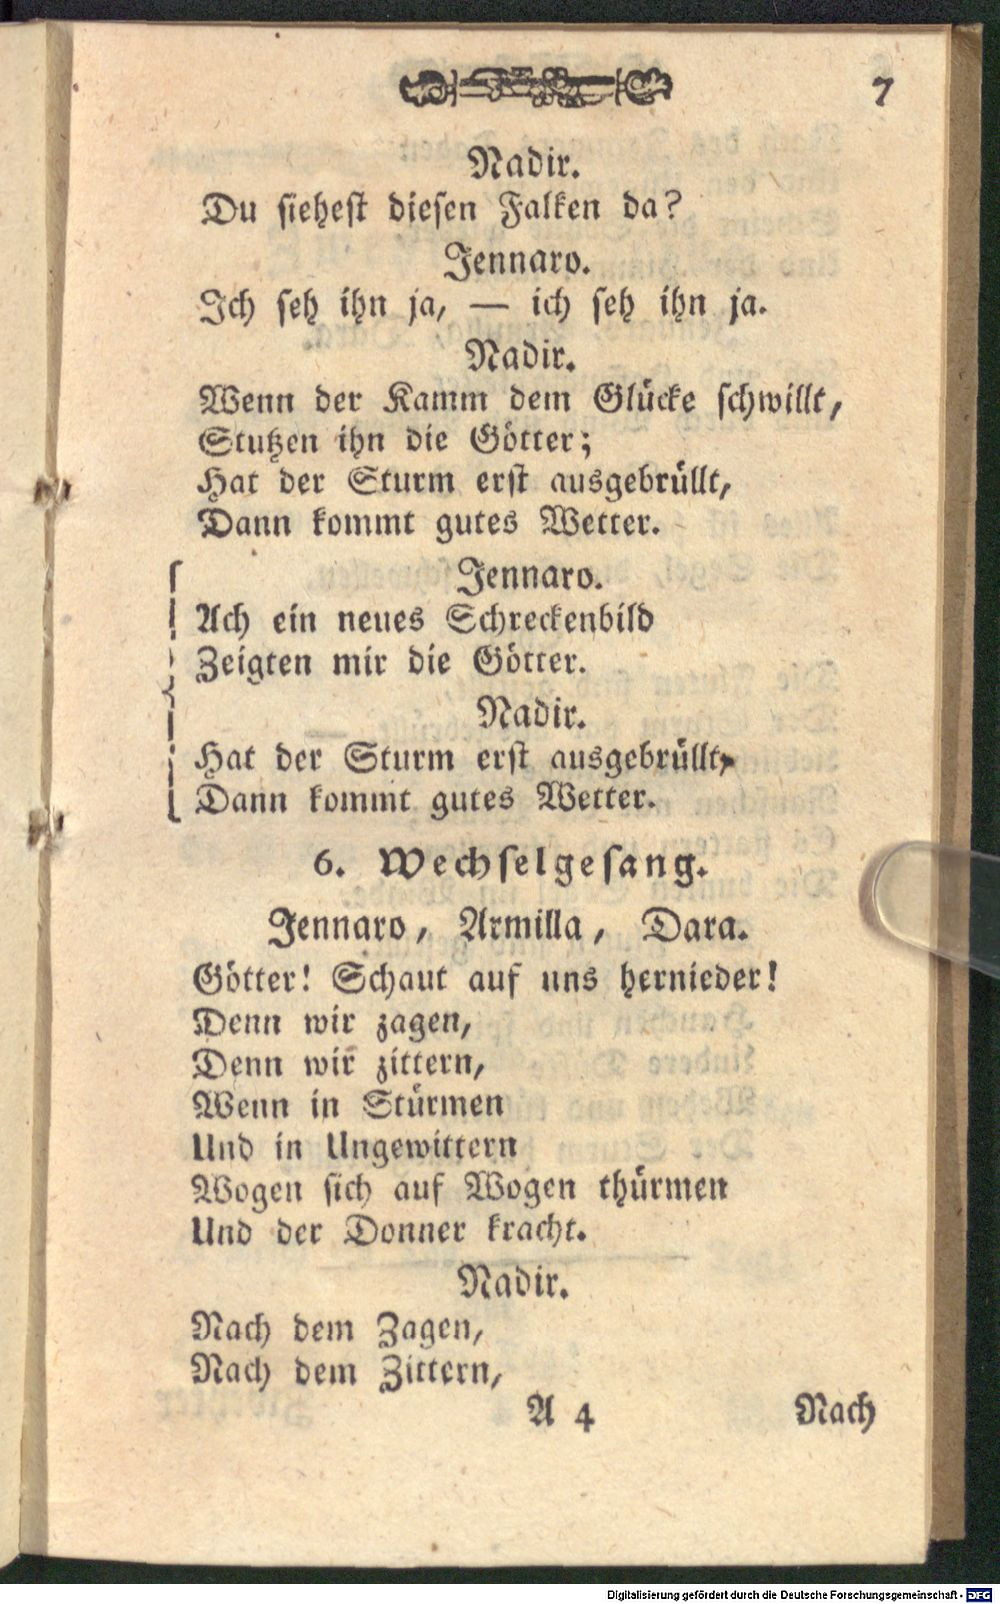 7
Nadir.
Du siehest diesen Falken da?
Jennaro.
Ich seh ihn ja, — ich seh ihn ja.
Nadir.
Wenn der Kamm dem Glücke schwillt,
Stutzen ihn die Götter;
Hat der Sturm erst ausgebrüllt,
Dann kommt gutes Wetter.
Jennaro.
Ach ein neues Schreckenbild
Zeigten mir die Götter.
Nadir.
Hat der Sturm erst ausgebrüllt,
Dann kommt gutes Wetter.
6. Wechselgesang.
Jennaro, Armilla, Dara.
Götter! Schaut auf uns hernieder!
Denn wir zagen,
Denn wir zittern,
Wenn in Stürmen
Und in Ungewittern
Wogen sich auf Wogen thürmen
Und der Donner kracht.
Nadir.
Nach dem Zagen,
Nach dem Zittern,
A 4 Nach
Digitalisierung gefördert durch die Deutsche Forschungsgemeinschaft - DFG